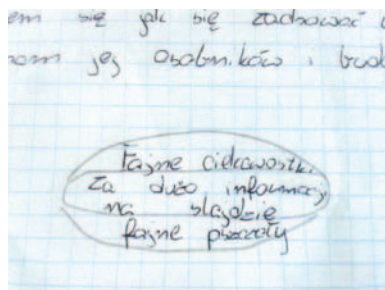 em się jak się zachować
nom jej osobników i bud
Fajne ciekawostki
Za dużo informacji
na slajdzie
fajne pszczoły